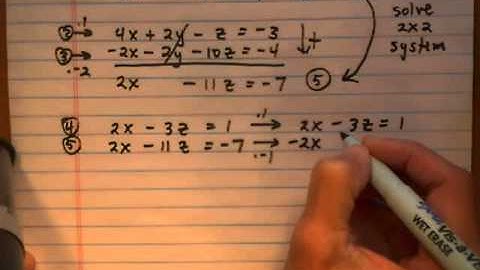 ② ·1→ 4x + 2y - z = -3
③ ·-2→ -2x - 2y - 10z = -4 ↓+
2x - 11z = -7 ⑤
solve
2x2
system
④ 2x - 3z = 1 ·1→ 2x - 3z = 1
⑤ 2x - 11z = -7 ·-1→ -2x
VIS-À-VIS
WET ERASE